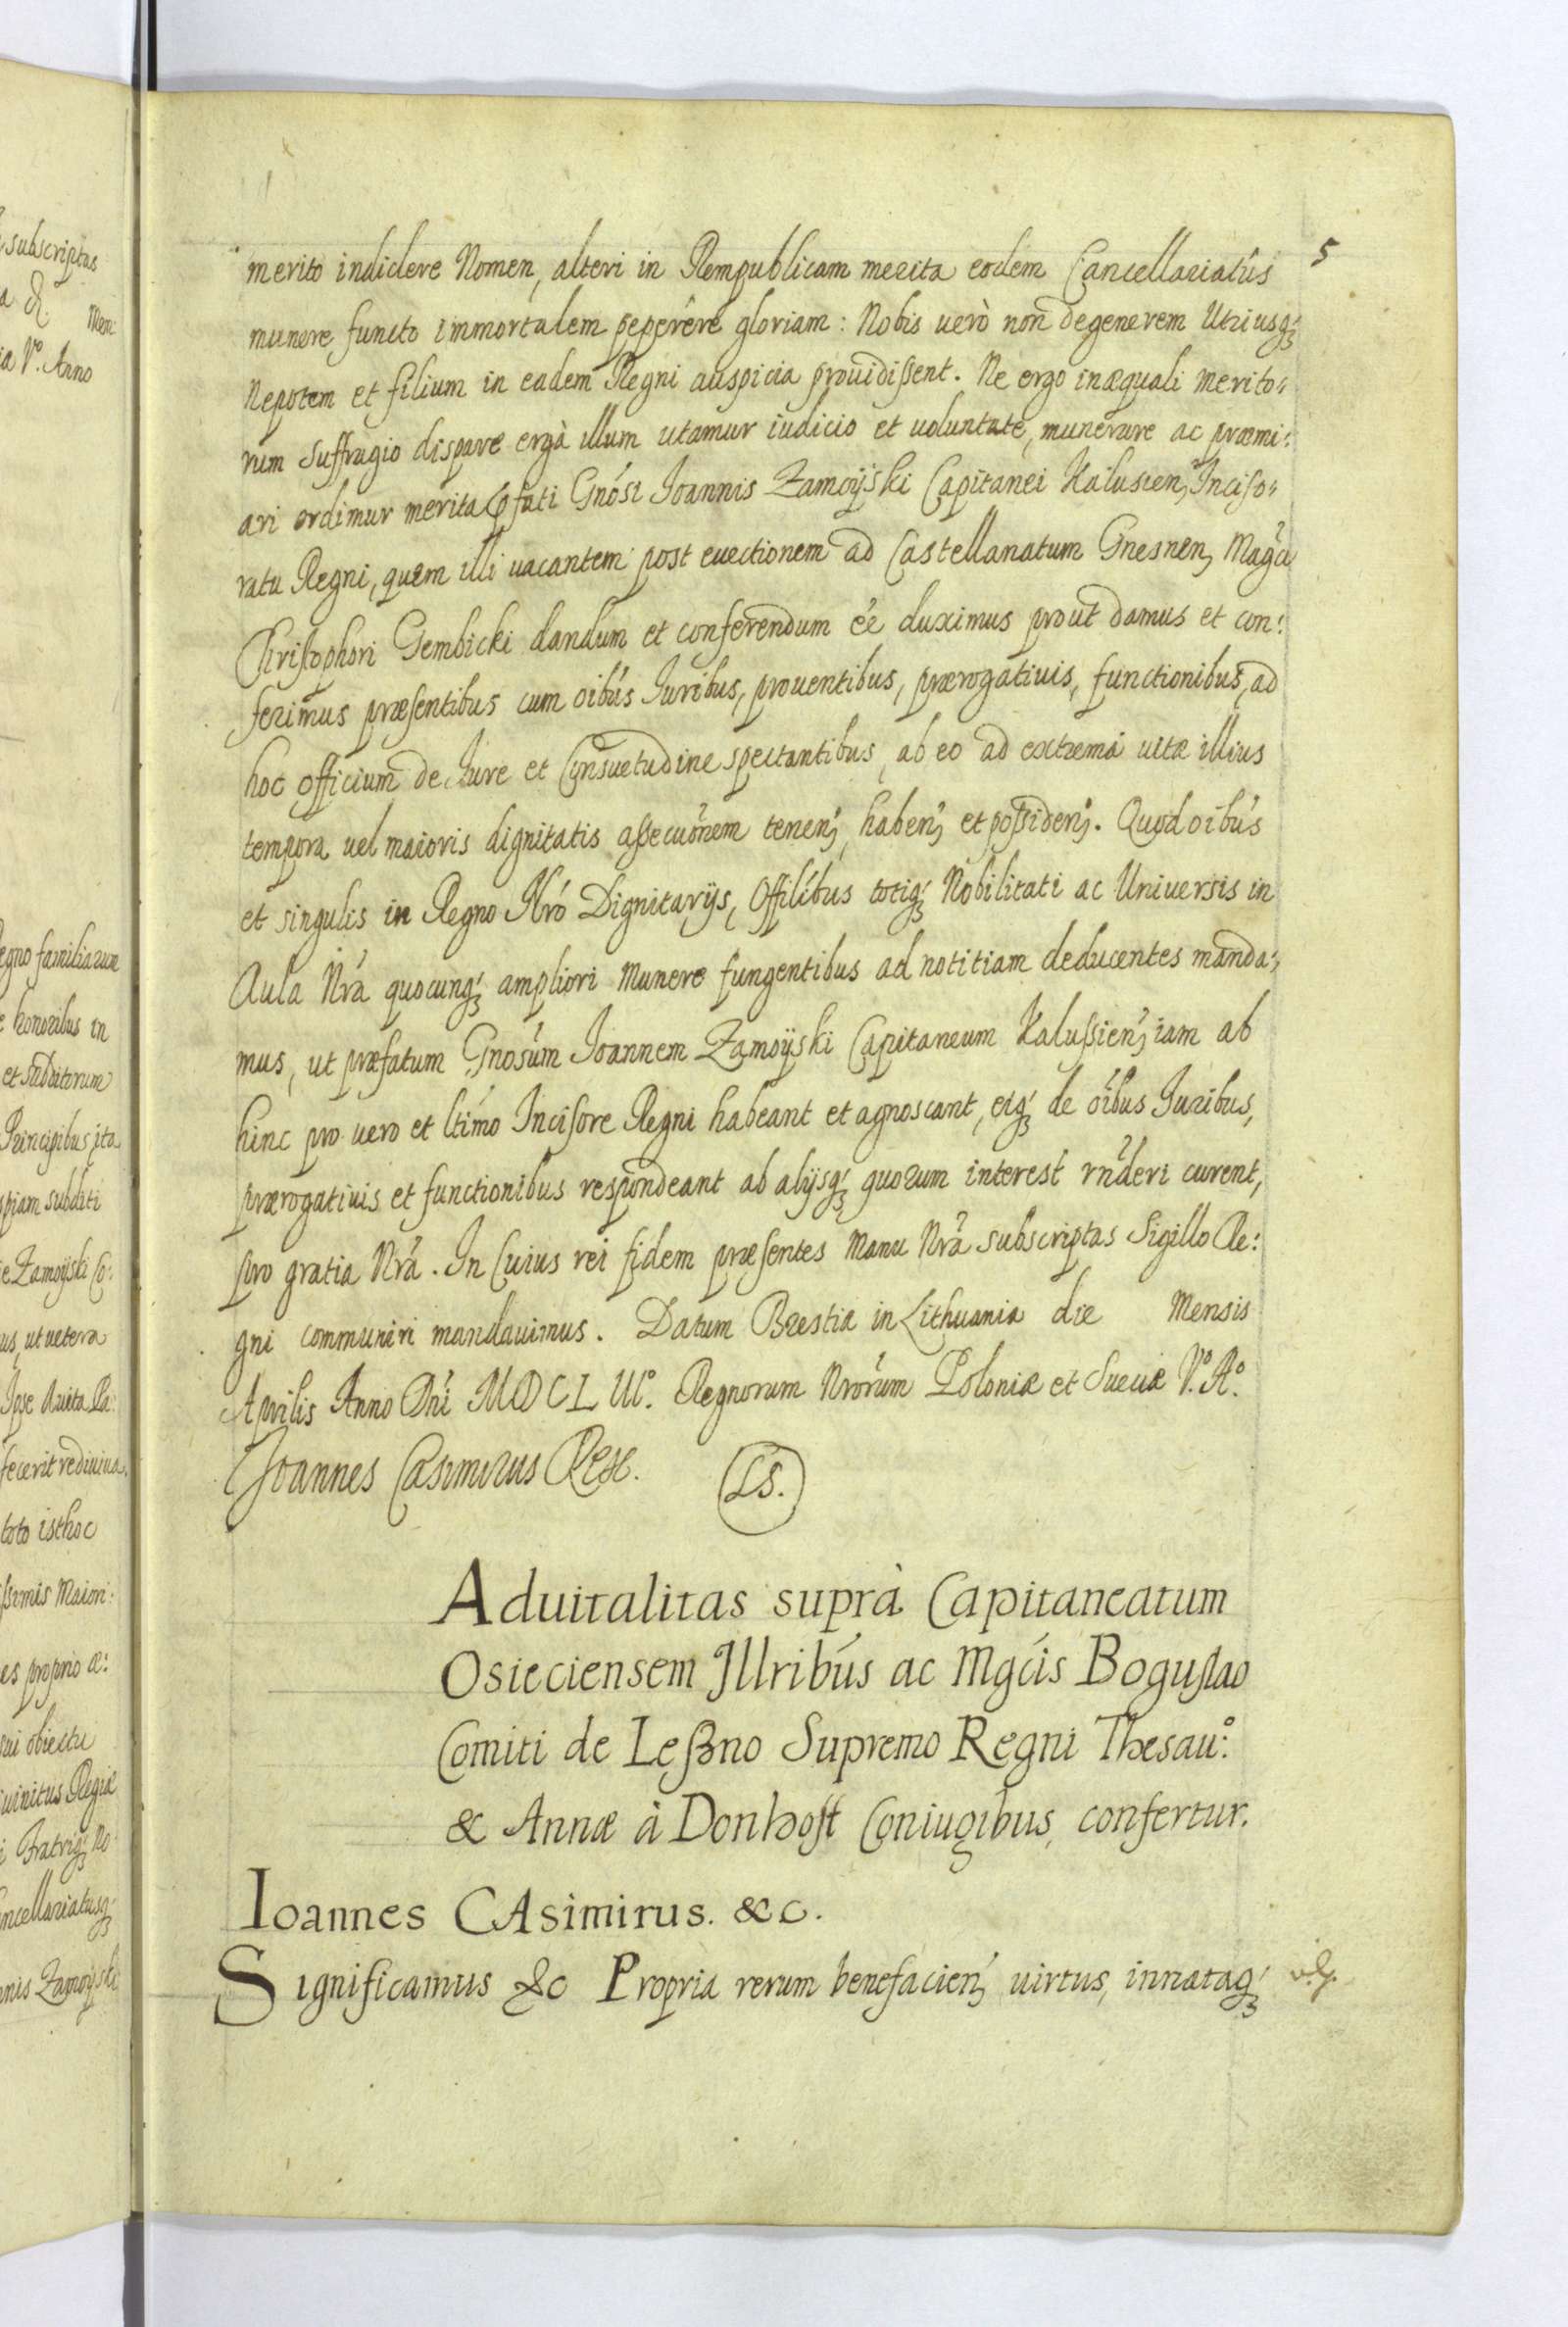 5
merito indidere Nomen, alteri in Rempublicam merita eodem Cancellariatûs
munere functo immortalem peperêre gloriam: Nobis uerò non degenerem Utriusq́ꝫ
Nepotem et filium in eadem Regni auspicia prouidissent. Ne ergo inæquali merito:
rum suffragio dispare ergà illum utamur iudicio et uoluntate, munerare ac præmi:
ari ordimur merita ꝓfati Gnósi Joannis Zamoÿski Capitanei Kalusien̄, Inciso:
ratu Regni, quem illi uacantem post euectionem ad Castellanatum Gnesnen̄, Magci
Christophori Gembicki dandum et conferendum ée duximus prout damus et con:
ferimus præsentibus cum oibús Iuribus, prouentibus, prærogatiuis, functionibus, ad
hoc officium de Iure et Consuetudine spectantibus, ab eo ad extrema uitæ illius
tempora uel maioris dignitatis assecuõnem tenen̄, haben̄, et possiden̄. Quod oibús
et singulis in Regno Nró Dignitarijs, Offilíbus totiq́ꝫ Nobilitati ac Uniuersis in
Aula Nrá quocunq́ꝫ ampliori Munere fungentibus ad notitiam deducentes manda:
mus, ut præfatum Gnosúm Joannem Zamoÿski Capitaneum Kalussien̄, iam ab
hinc pro uero et ltimó Incisore Regni habeant et agnoscant, eiq́ꝫ de oíbus Iuribus,
prærogatiuis et functionibus respondeant ab alijsq́ꝫ quorum interest rńderi curent,
pro gratia Nrá. In Cuius rei fidem præsentes Manu Nrá subscriptas Sigillo Re:
gni communiri mandauimus. Datum Brestiæ in Lithuania die Mensis
Aprilis Anno Dńi MDCLIII°. Regnorum Nrórum Poloniæ et Sueciæ V.° A.°
Joannes Casimirus Rex. LS.
Aduitalitas suprà Capitaneatum
Osieciensem Jllribús ac Mgcís Boguslao
Comiti de Leszno Supremo Regni Thesau:°
& Annæ à Donhoff Coniugibus, confertur.
Ioannes CAsimirus. &c.
Significamus &c Propria rerum benefacien̄ uirtus, innataq́ꝫ